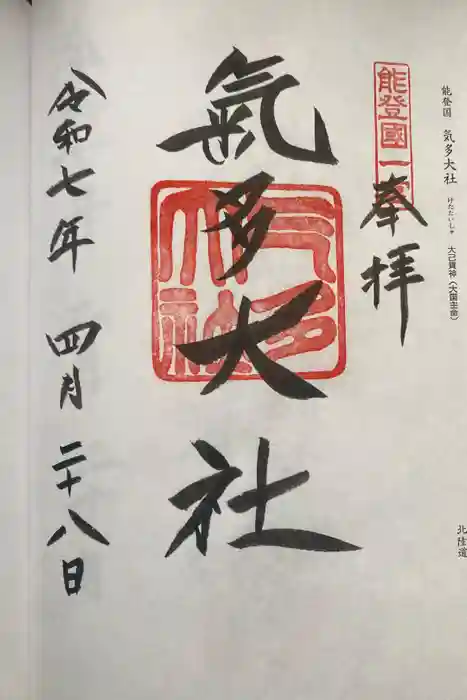 能登国 氣多大社 けたたいしゃ 大己貴神(大国主命)
北陸道
能登國一
奉拝
氣多大社
氣多大社
令和七年 四月 二十八日